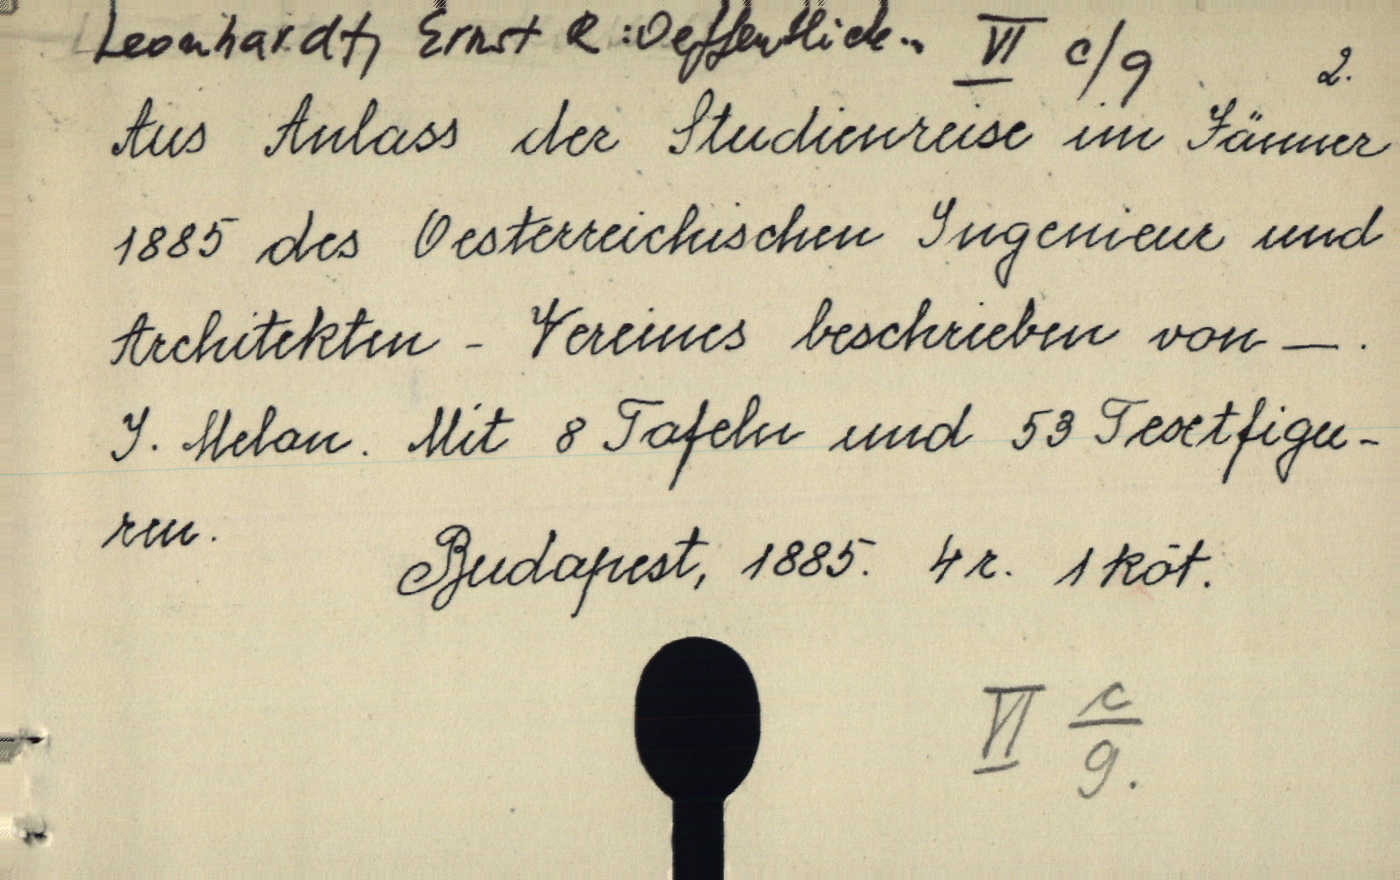 Leonhardt, Ernst R: Oeffentlich.. VI c/9 2.
Aus Anlass der Studienreise im Jänner
1885 des Oesterreichischen Ingenieur und
Architekten - Vereines beschrieben von —.
J. Melan. Mit 8 Tafeln und 53 Textfigu-
ren.
Budapest, 1885. 4 r. 1 köt.
VI c/9.